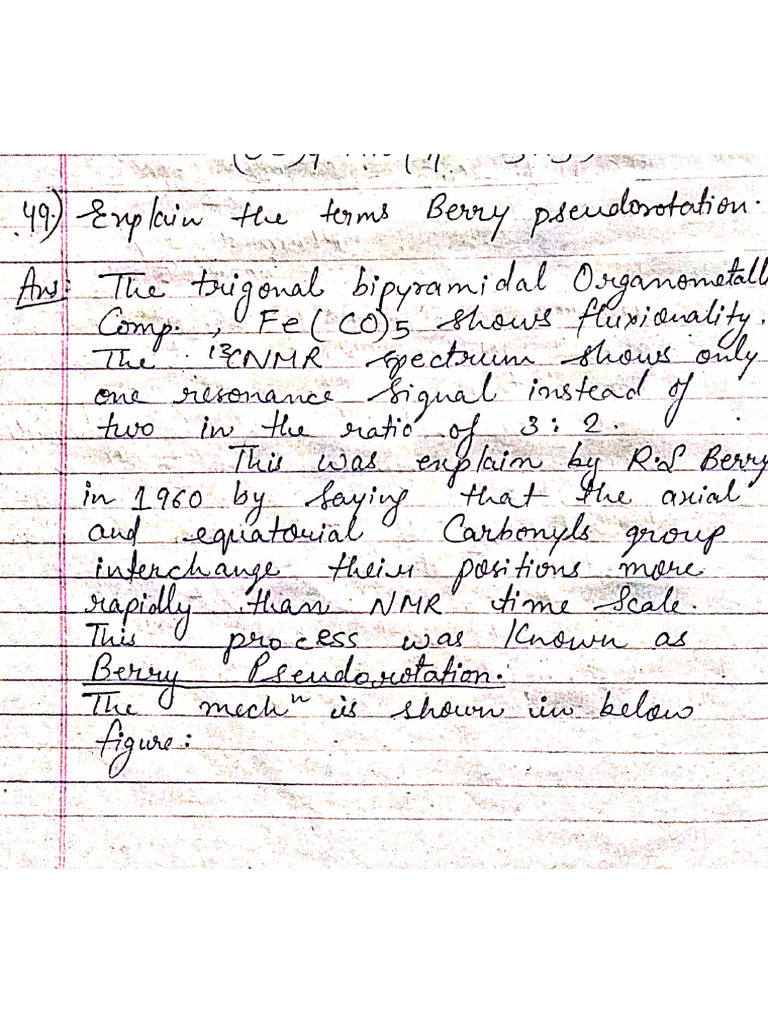 49.) Explain the terms Berry pseudorotation.
Ans: The trigonal bipyramidal Organometall
Comp., Fe(CO)5 shows fluxionality.
The ¹³CNMR spectrum shows only
one resonance signal instead of
two in the ratio of 3:2.
This was explain by R.S Berry
in 1960 by saying that the axial
and equatorial Carbonyls group
interchange their positions more
rapidly than NMR time scale.
This process was Known as
Berry Pseudorotation.
The mechⁿ is shown in below
figure: